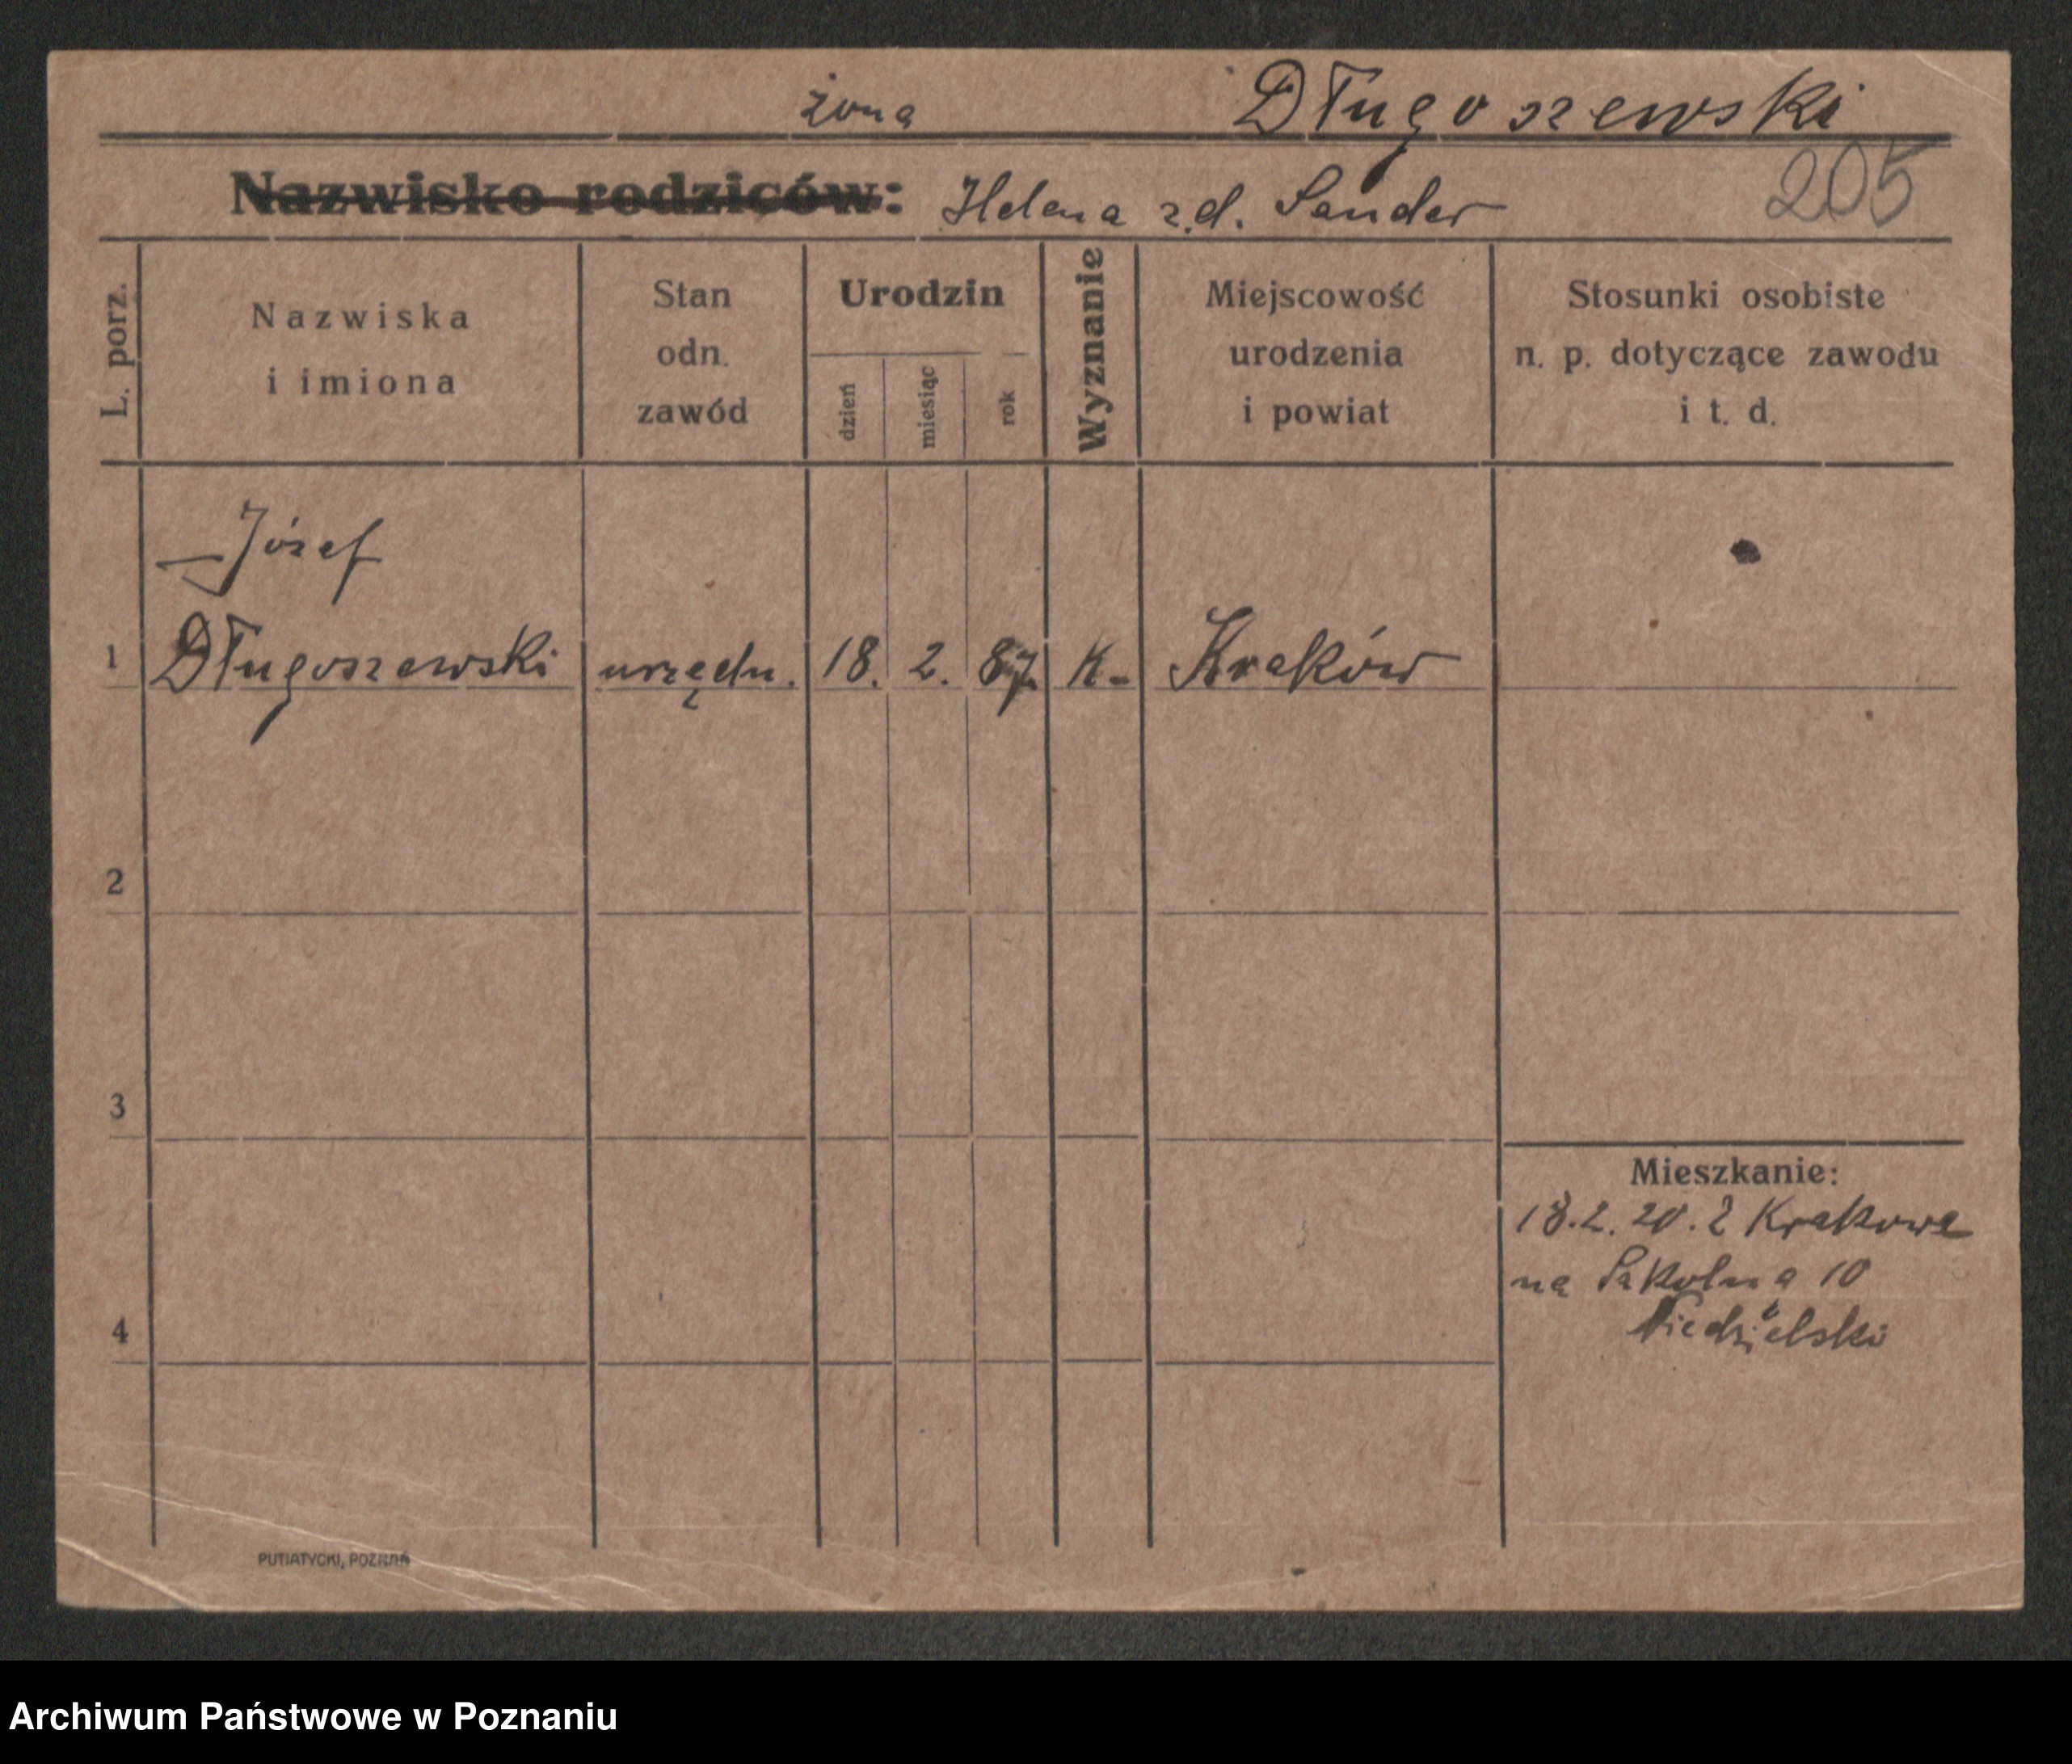 żona Długoszewski
Nazwisko rodziców: Helena z.d. Sander 205
L. porz.
Nazwiska
i imiona
Stan
odn.
zawód
Urodzin
dzień
miesiąc
rok
Wyznanie
Miejscowość
urodzenia
i powiat
Stosunki osobiste
n. p. dotyczące zawodu
i t. d.
Józef
1 Długoszewski urzędn. 18. 2. 87. K- Kraków
2
3
4
Mieszkanie:
18.2.20. z Krakowa
na 10
Niedzielski
PUTIATYCKI, POZNAŃ
Archiwum Państwowe w Poznaniu